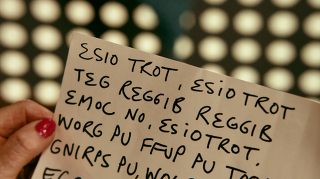 ESIO TROT, ESIO TROT
TEG REGGIB REGGIB
EMOC NO, ESIO TROT,
WORG PU FFUP PU
GNIRPS PU,